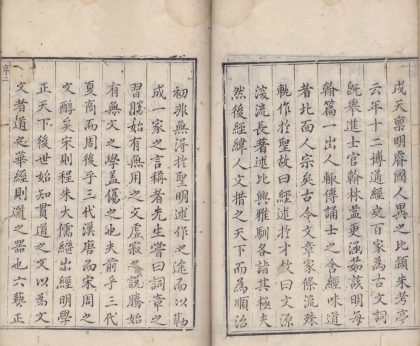 天稟明睿國人異之比朱考亭
云年十二博通經史百家為古文詞
既舉進士官翰林益更涵茹該明每
翰篇一出人輙傳誦士之含經味道
者北面人宗矣古今文章家條流殊
軌作於聖故曰經述於才故曰文源
浚流長著述比興雅馴各詣其極夫
然後經緯人文措之天下而為順治
初非無得於聖明述作之途而以勒
成一家之言稱者先生嘗曰詞章之
習勝始有無用之文虛寂說勝始
有無文之學蓋傷之也夫前乎三代
夏商而周後乎三代漢唐而宋周之
文醇矣宋則程朱大儒繼出經明學
正天下後世始知貫道之文以為文
文者道之華經則道之器也六藝正
序二